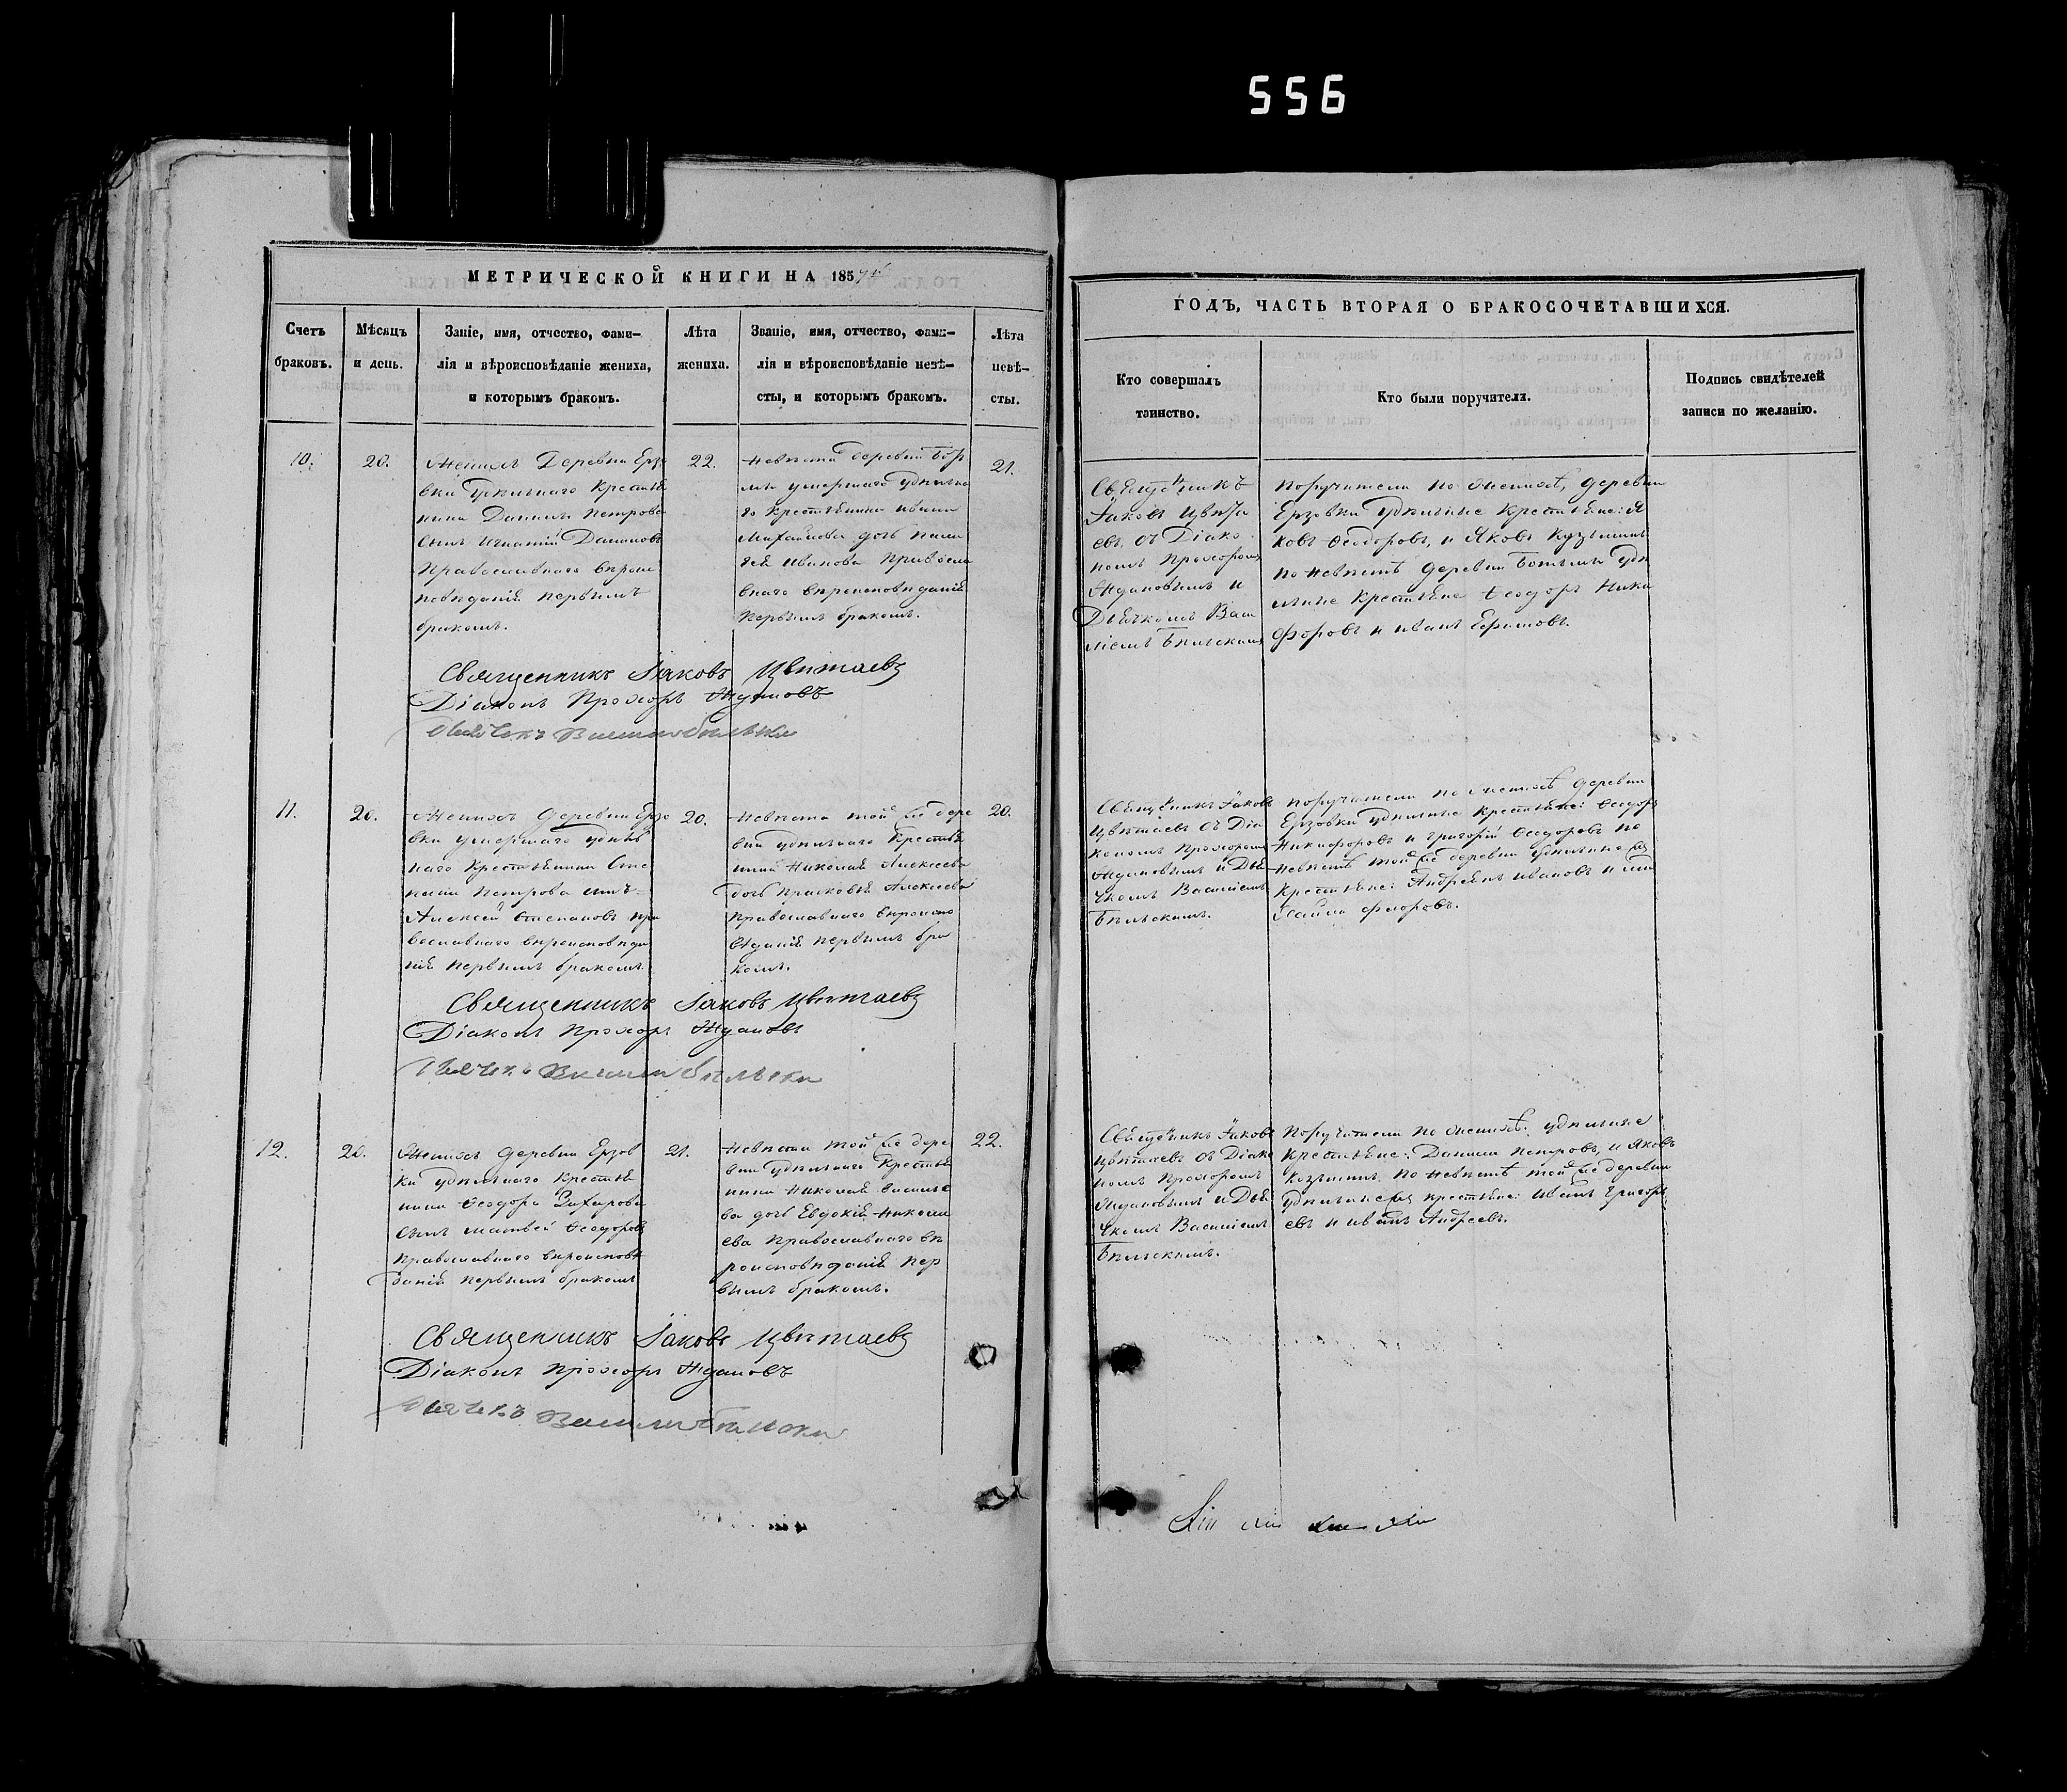 556
МЕТРИЧЕСКОЙ КНИГИ НА 185
ГОДЪ, ЧАСТЬ ВТОРАЯ О БРАКОСОЧЕТАВШИХСЯ.
Счетъ
браковъ.
Мѣсяцъ
и день.
Званіе, имя, отчество, фами-
лія и вѣроисповѣданіе жениха,
и которымъ бракомъ.
Лѣта
жениха.
Званіе, имя, отчество, фами-
лія и вѣроисповѣданіе невѣ-
сты, и которымъ бракомъ.
Лѣта
невѣ-
сты.
Кто совершалъ
таинство.
Кто были поручители.
Подпись свидѣтелей
записи по желанію.
10.
20.
Женихъ Деревни Ерзо
вки Удѣльнаго Крестья
нина Данилы Петрова
сынъ Игнатій Даниловъ
Православнаго вѣроис
повѣданія первымъ
бракомъ.
22.
Невѣста деревни
умершаго Удѣльна
го Крестьянина Ивана
Михайлова дочь
Иванова Правосла
внаго вѣроисповѣданія
первымъ бракомъ.
21.
Священникъ
Іаковъ Цвѣта
евъ съ Діако
номъ Прохоромъ
Ждановымъ и
Дьячкомъ Васи
ліемъ Бѣльскимъ
Поручители по женихѣ, деревни
Ерзовки Удѣльные Крестьяне: Я
ковъ Ѳеодоровъ, и Яковъ Кузьминъ
по невѣстѣ деревни Удѣ
льные Крестьяне Ѳеодоръ Ники
форовъ и Иванъ Ефимовъ.
Священникъ Іаковъ Цвѣтаевъ
Діаконъ Прохоръ Ждановъ
11.
20.
Женихъ деревни Ерзо
вки умершаго удѣль
наго Крестьянина Сте
пана Петрова сынъ
Алексѣй Степановъ пра
вославнаго вѣроисповѣда
нія первымъ бракомъ.
20.
Невѣста той же дере
вни удѣльнаго Крестья
нина Николая Алексеева
дочь Прасковья Алексеева
Православнаго вѣроиспо
вѣданія первымъ бра
комъ.
20.
Священникъ Іаковъ
Цвѣтаевъ съ Діа
кономъ Прохоромъ
Ждановымъ и Дья
чкомъ Василіемъ
Бѣльскимъ.
Поручители по женихѣ деревни
Ерзовки удѣльные крестьяне: Ѳеодоръ
Никифоровъ и Григорій Ѳеодоровъ по
невѣстѣ той же деревни удѣльные
Крестьяне: Андреянъ Ивановъ и Ми
хайла Флоровъ.
Священникъ Іаковъ Цвѣтаевъ
Діаконъ Прохоръ Ждановъ
12.
20.
Женихъ деревни Ерзов
ки удѣльнаго Крестья
нина Ѳеодора Захарова
сынъ Матвей Ѳеодоровъ
Православнаго вѣроисповѣ
данія первымъ бракомъ
21.
Невѣста той же дере
вни удѣльнаго Крестья
нина Николая Василье
ва дочь Евдокія Никола
ева Православнаго вѣ
роисповѣданія пер
вымъ бракомъ.
22.
Священникъ Іаковъ
Цвѣтаевъ съ Діако
номъ Прохоромъ
Ждановымъ и Дья
чкомъ Василіемъ
Бѣльскимъ.
Поручители по женихѣ: удѣльные
крестьяне: Данила Петровъ, и Яковъ
Козьминъ. По невѣстѣ той же деревни
Удѣльные крестьяне: Иванъ Григорь
евъ и Иванъ Андреевъ.
Священникъ Іаковъ Цвѣтаевъ
Діаконъ Прохоръ Ждановъ